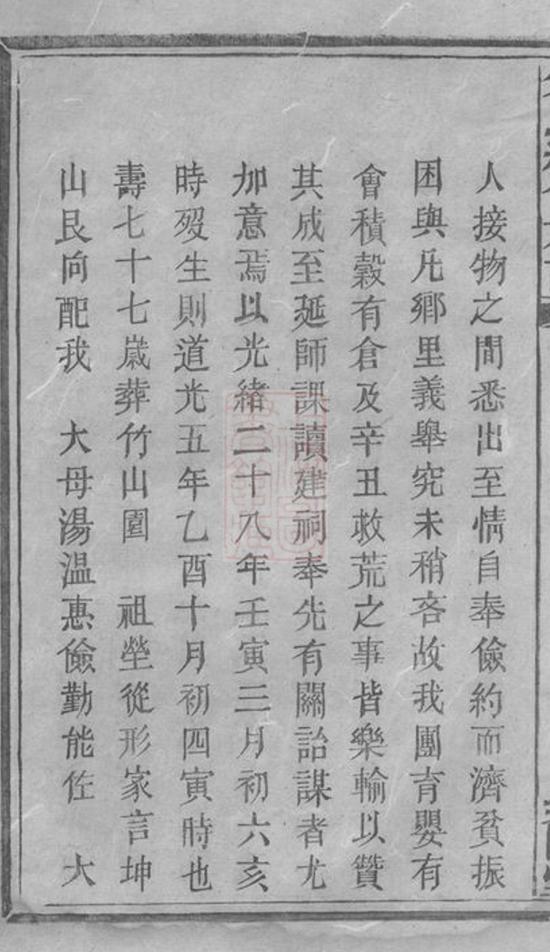 人接物之間悉出至情自奉儉約而濟貧振
困與凡鄉里義舉究未稍吝故我團育嬰有
會積穀有倉及辛丑救荒之事皆樂輸以贊
其成至延師課讀建祠奉先有關詒謀者尤
加意焉以光緒二十八年壬寅三月初六亥
時歿生則道光五年乙酉十月初四寅時也
壽七十七歲葬竹山園　祖塋從形家言坤
山艮向配我　大母湯温惠儉勤能佐　大